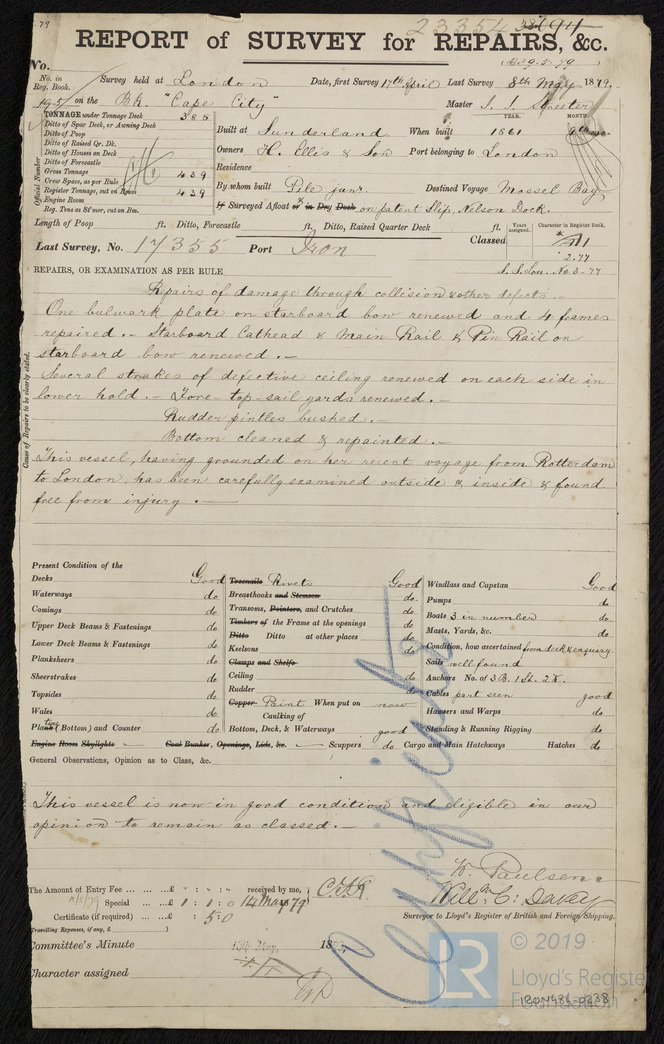 79
23354
REPORT of SURVEY for REPAIRS, &c.
No.
No. in Reg. Book. Survey held at London Date, first Survey 17th April Last Survey 8th May 1879.
195 on the Bk. "Cape City" Master J. J. Streeter
TONNAGE under Tonnage Deck 385
Ditto of Spar Deck, or Awning Deck
Ditto of Poop
Ditto of Raised Qr. Dk.
Ditto of Houses on Deck
Ditto of Forecastle
Gross Tonnage 439
Crew Space, as per Rule
Register Tonnage, cut on Beam 439
Engine Room
Reg. Tons as St'mer, cut on Bm.
Official Number
YEAR. MONTH.
Built at Sunderland When built 1861
Owners H. Ellis & Son Port belonging to London
Residence
By whom built Pile junr. Destined Voyage Mossel Bay
If Surveyed Afloat or in Dry Dock on patent Slip, Nelson Dock.
Length of Poop ft. Ditto, Forecastle ft. Ditto, Raised Quarter Deck ft.
Years assigned. Character in Register Book.
Last Survey, No. 17355 Port Iron Classed
2.77
S.S. Lon. No 3-77
REPAIRS, OR EXAMINATION AS PER RULE
Repairs of damage through collision & other defects
One bulwark plate on starboard bow renewed and 4 frames
repaired. - Starboard Cathead & Main Rail & Pin Rail on
starboard bow renewed. -
Several strakes of defective ceiling renewed on each side in
lower hold. - Fore-top-sail yards renewed. -
Rudder pintles bushed. -
Bottom cleaned & repainted. -
This vessel, having grounded on her recent voyage from Rotterdam
to London, has been carefully examined outside & inside & found
free from injury. -
Cause of Repairs to be clearly stated.
Present Condition of the
Decks Good
Waterways do
Comings do
Upper Deck Beams & Fastenings do
Lower Deck Beams & Fastenings do
Planksheers do
Sheerstrakes do
Topsides do
Wales do
Plating (Bottom) and Counter do
Engine Room Skylights - Coal Bunker, Openings, Lids, &c. - Scuppers do Cargo and Main Hatchways Hatches do
Treenails Rivets Good
Breasthooks and Stemson do.
Transoms, Pointers, and Crutches do.
Timbers of the Frame at the openings do.
Ditto Ditto at other places do.
Keelsons do.
Clamps and Shelfs
Ceiling do.
Rudder do.
Copper Paint When put on now
Caulking of
Bottom, Deck, & Waterways good
Windlass and Capstan Good
Pumps do
Boats 3 in number do
Masts, Yards, &c. do.
Condition, how ascertained from deck & enquiry
Sails well found
Anchors No. of 3 B. 1 St. 2 K.
Cables part seen good
Hawsers and Warps do.
Standing & Running Rigging do
General Observations, Opinion as to Class, &c.
This vessel is now in good condition and eligible in our
opinion to remain as classed. -
Certificate
The Amount of Entry Fee £ received by me,
Special £ 1 : 1 : 0 14 May 79
Certificate (if required) : 5 : 0
Travelling Expenses, if any, £
W. Paulsen
Willm. C. Davey
Surveyor to Lloyd's Register of British and Foreign Shipping.
Committee's Minute 18
Character assigned
LR © 2019
Lloyd's Register
Foundation
IRON436-0238